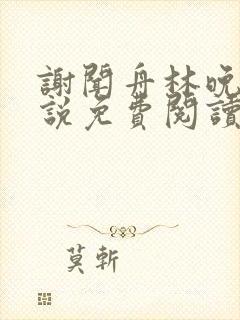 謝聞舟林晚
說免費閱讀
莫斬